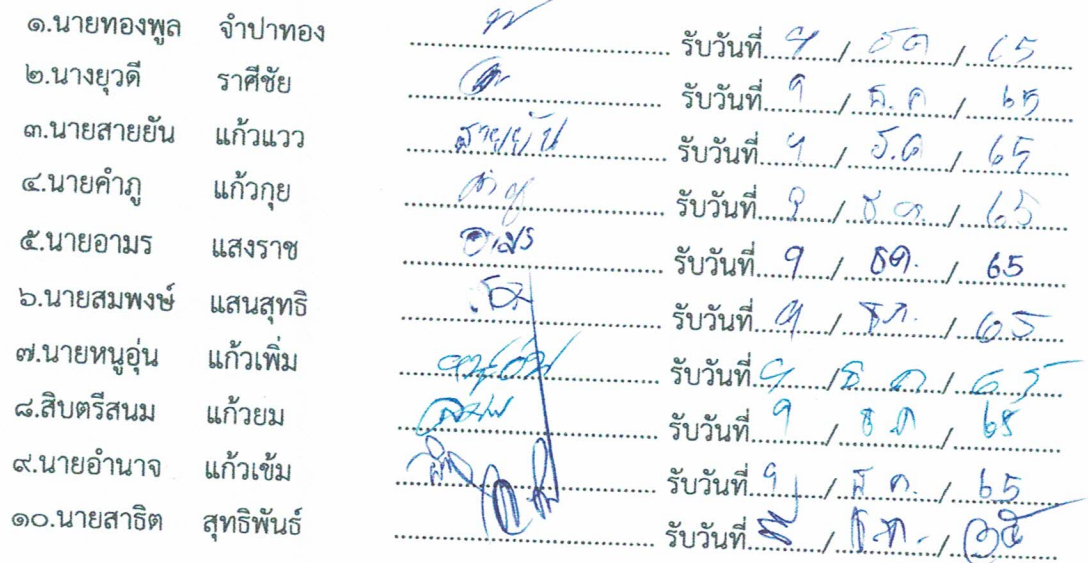 ๑.นายทองพูล จำปาทอง ........ รับวันที่ 9 / ธค / 65
๒.นางยุวดี ราศีชัย ........ รับวันที่ 9 / ธ.ค / 65
๓.นายสายยัน แก้วแวว สายยัน รับวันที่ 9 / ธ.ค / 65
๔.นายคำภู แก้วกุย ........ รับวันที่ 9 / ธ ค. / 65
๕.นายอามร แสงราช อามร รับวันที่ 9 / ธค. / 65
๖.นายสมพงษ์ แสนสุทธิ ........ รับวันที่ 9 / ธค. / 65
๗.นายหนูอุ่น แก้วเพิ่ม ........ รับวันที่ 9 / ธ ค / 65
๘.สิบตรีสนม แก้วยม ........ รับวันที่ 9 / ธ ค / 65
๙.นายอำนาจ แก้วเข้ม ........ รับวันที่ 9 / ธ ค. / 65
๑๐.นายสาธิต สุทธิพันธ์ ........ รับวันที่ / ธ.ค. /